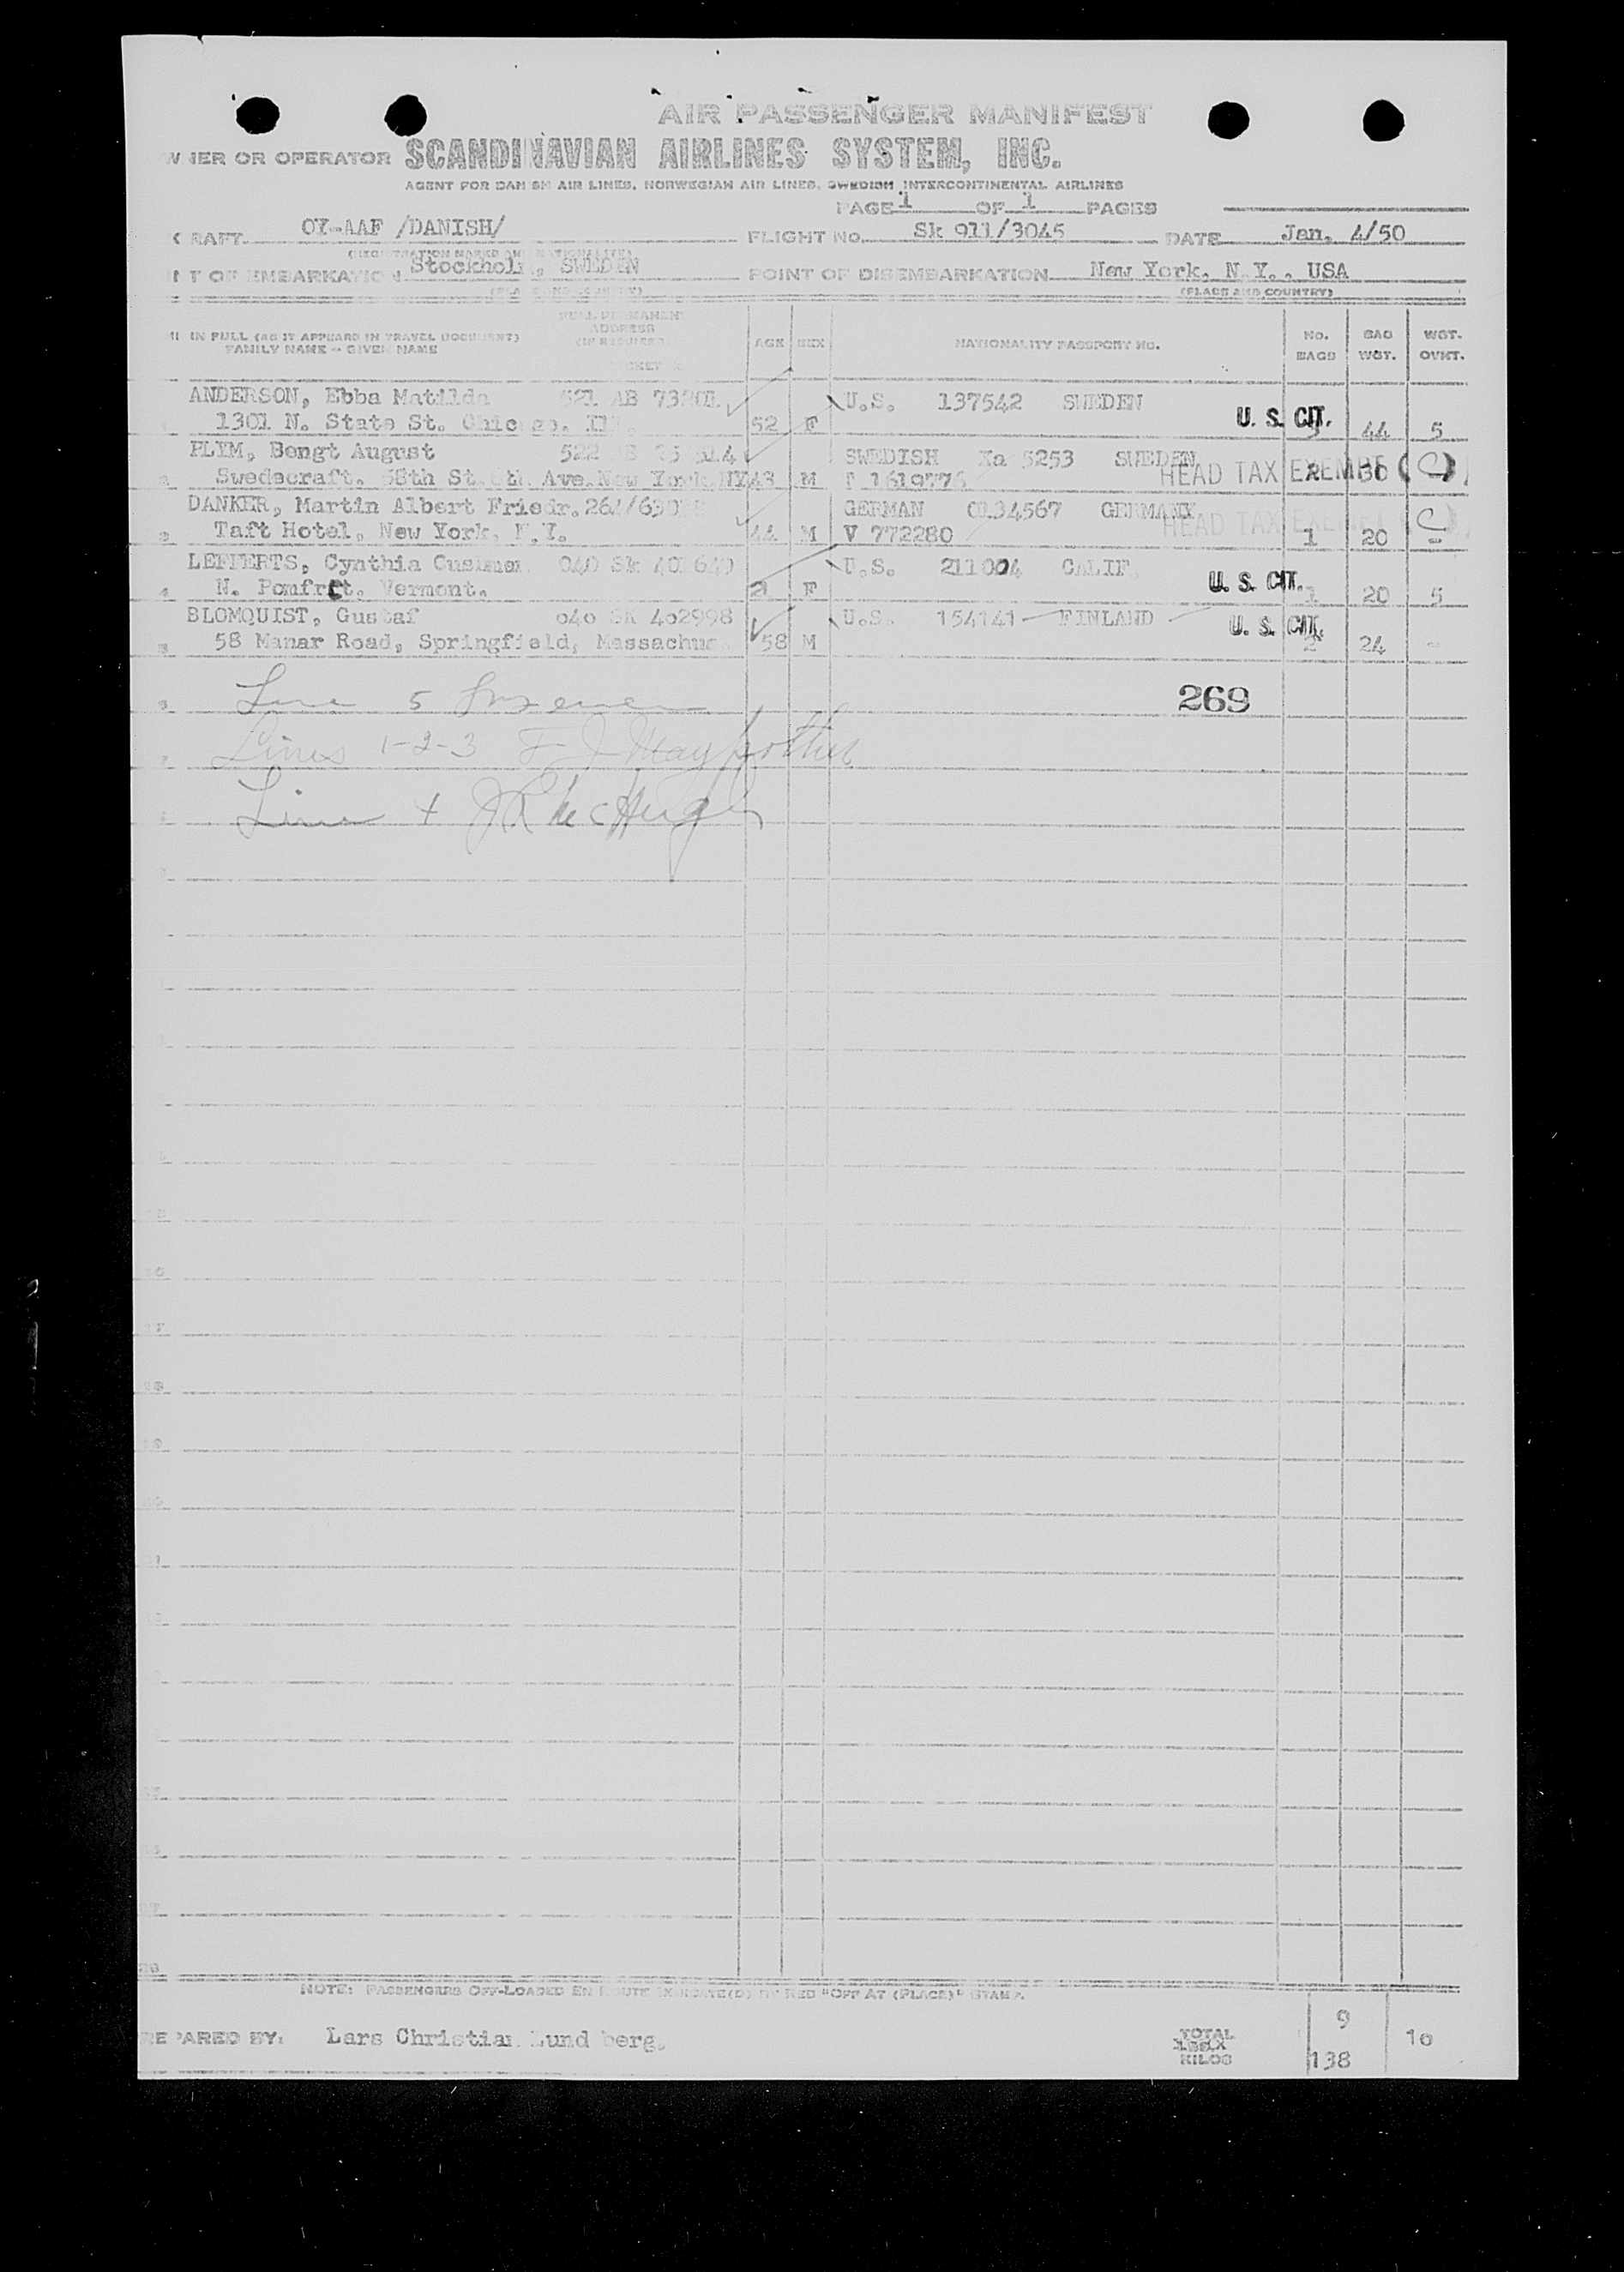 AIR PASSENGER MANIFEST
OR OPERATOR SCANDINAVIAN AIRLINES SYSTEM, INC.
AGENT FOR DANISH AIR LINES, NORWEGIAN AIR LINES, SWEDISH INTERCONTINENTAL AIRLINES
PAGE 1 OF 1 PAGES
RAFT OY-AAF /DANISH/ FLIGHT NO. Sk 911/3045 DATE Jan. 4/50
T OF EMBARKATION Stockholm, SWEDEN POINT OF DISEMBARKATION New York, N.Y., USA
(PLACE AND COUNTRY)
IN FULL (AS IT APPEARS IN TRAVEL DOCUMENT) FULL PERMANENT ADDRESS
FAMILY NAME - GIVEN NAME AGE SEX NATIONALITY PASSPORT NO. NO. BAGS BAG WGT. WGT. OVHT.
ANDERSON, Ebba Matilda 521 AB U.S. 137542 SWEDEN
1301 N. State St. Chicago. 52 F U. S. CIT. 44 5
PLYM, Bengt August 522 SWEDISH Xa 5253 SWEDEN
Swedecraft. St. Ave. New York NY 43 M HEAD TAX EXEMPT 2 30
DANKER, Martin Albert Friedr. GERMAN 0134567 GERMANY
Taft Hotel, New York, N.Y. 44 M V 772280 HEAD TAX EXEMPT 1 20 -
LEFFERTS, Cynthia 040 Sk U.S. 211004 CALIF.
N. Pomfret, Vermont. F U. S. CIT. 1 20 5
BLOMQUIST, Gustaf 040 SK 402998 U.S. 154141 - FINLAND
58 Manar Road, Springfield, 58 M U. S. CIT. 2 24 -
Line 5 269
Lines 1-2-3
Line 4
NOTE: PASSENGERS OFF-LOADED EN ROUTE INDICATE(D) BY RED "OFF AT (PLACE)" STAMP.
PREPARED BY: Lars Christian Lundberg. TOTAL 9 10
KILOS 138